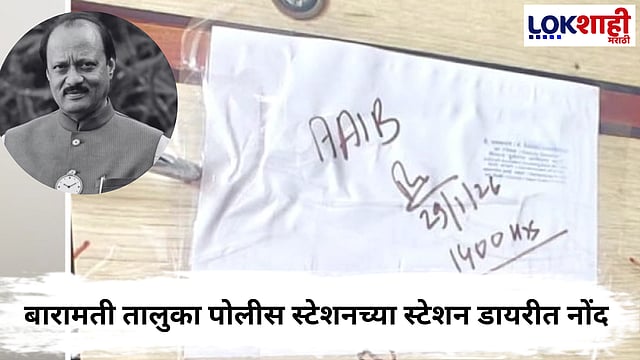 LOKSHAHI
मराठी
AAIB
29/1/26
1400 Hrs
बारामती तालुका पोलीस स्टेशनच्या स्टेशन डायरीत नोंद